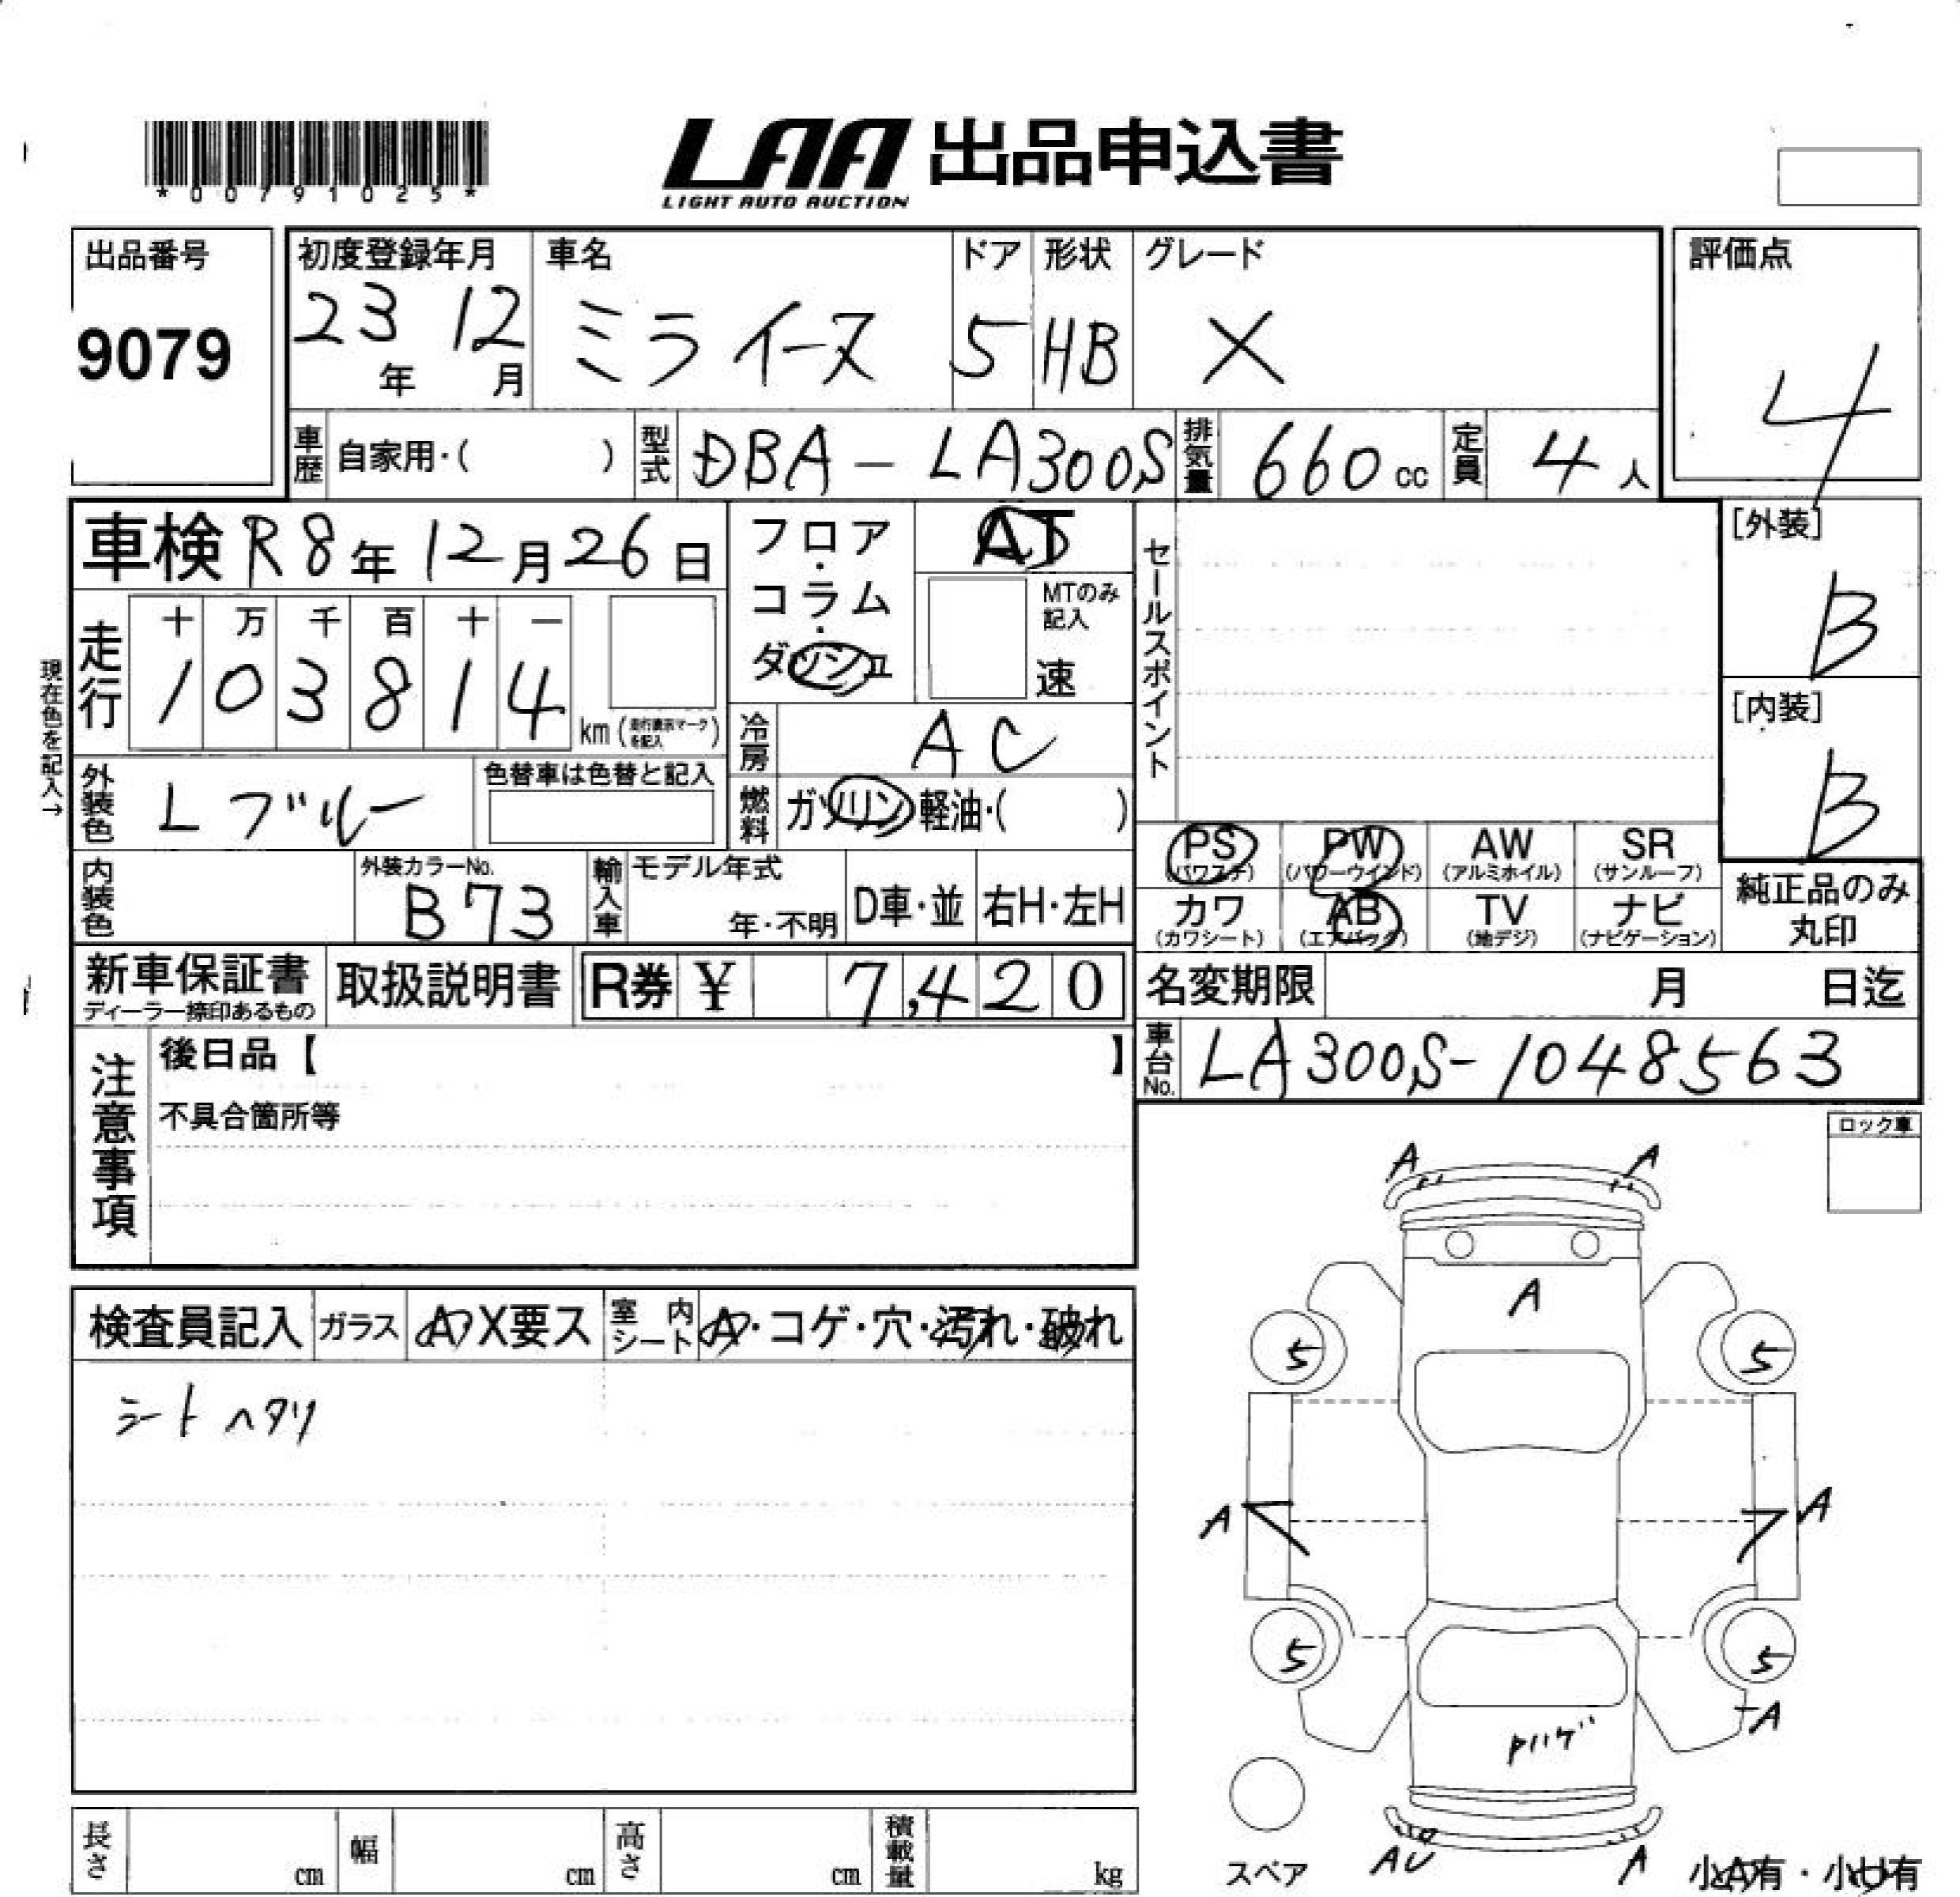 *00791025*
LAA 出品申込書
LIGHT AUTO AUCTION
出品番号
9079
初度登録年月
23年 12月
車名
ミライース
ドア
5
形状
HB
グレード
X
評価点
4
車歴 自家用・( )
型式 DBA-LA300S
排気量 660cc
定員 4人
車検 R8年12月26日
現在色を記入→
走行
十 万 千 百 十 一
1 0 3 8 1 4
km(走行表示マークを記入)
フロア・コラム・ダッシュ
AT
MTのみ記入
速
冷房 AC
燃料 ガソリン・軽油・( )
セールスポイント
[外装]
B
[内装]
B
外装色 Lブルー
色替車は色替と記入
内装色
外装カラーNo.
B73
輸入車
モデル年式
年・不明
D車・並
右H・左H
PS
(パワステ)
PW
(パワーウインド)
AW
(アルミホイル)
SR
(サンルーフ)
カワ
(カワシート)
AB
(エアバッグ)
TV
(地デジ)
ナビ
(ナビゲーション)
純正品のみ
丸印
新車保証書
ディーラー捺印あるもの
取扱説明書
R券 ¥ 7,420
名変期限 月 日迄
車台No. LA300S-1048563
注意事項
後日品【 】
不具合箇所等
ロック車
検査員記入
ガラス
X要ス
室内シート
・コゲ・穴・汚れ・破れ
シートヘタリ
A
A
A
5
5
A
A
5
5
A
トハゲ
AU
A
スペア
長さ cm
幅 cm
高さ cm
積載量 kg
小A有・小U有